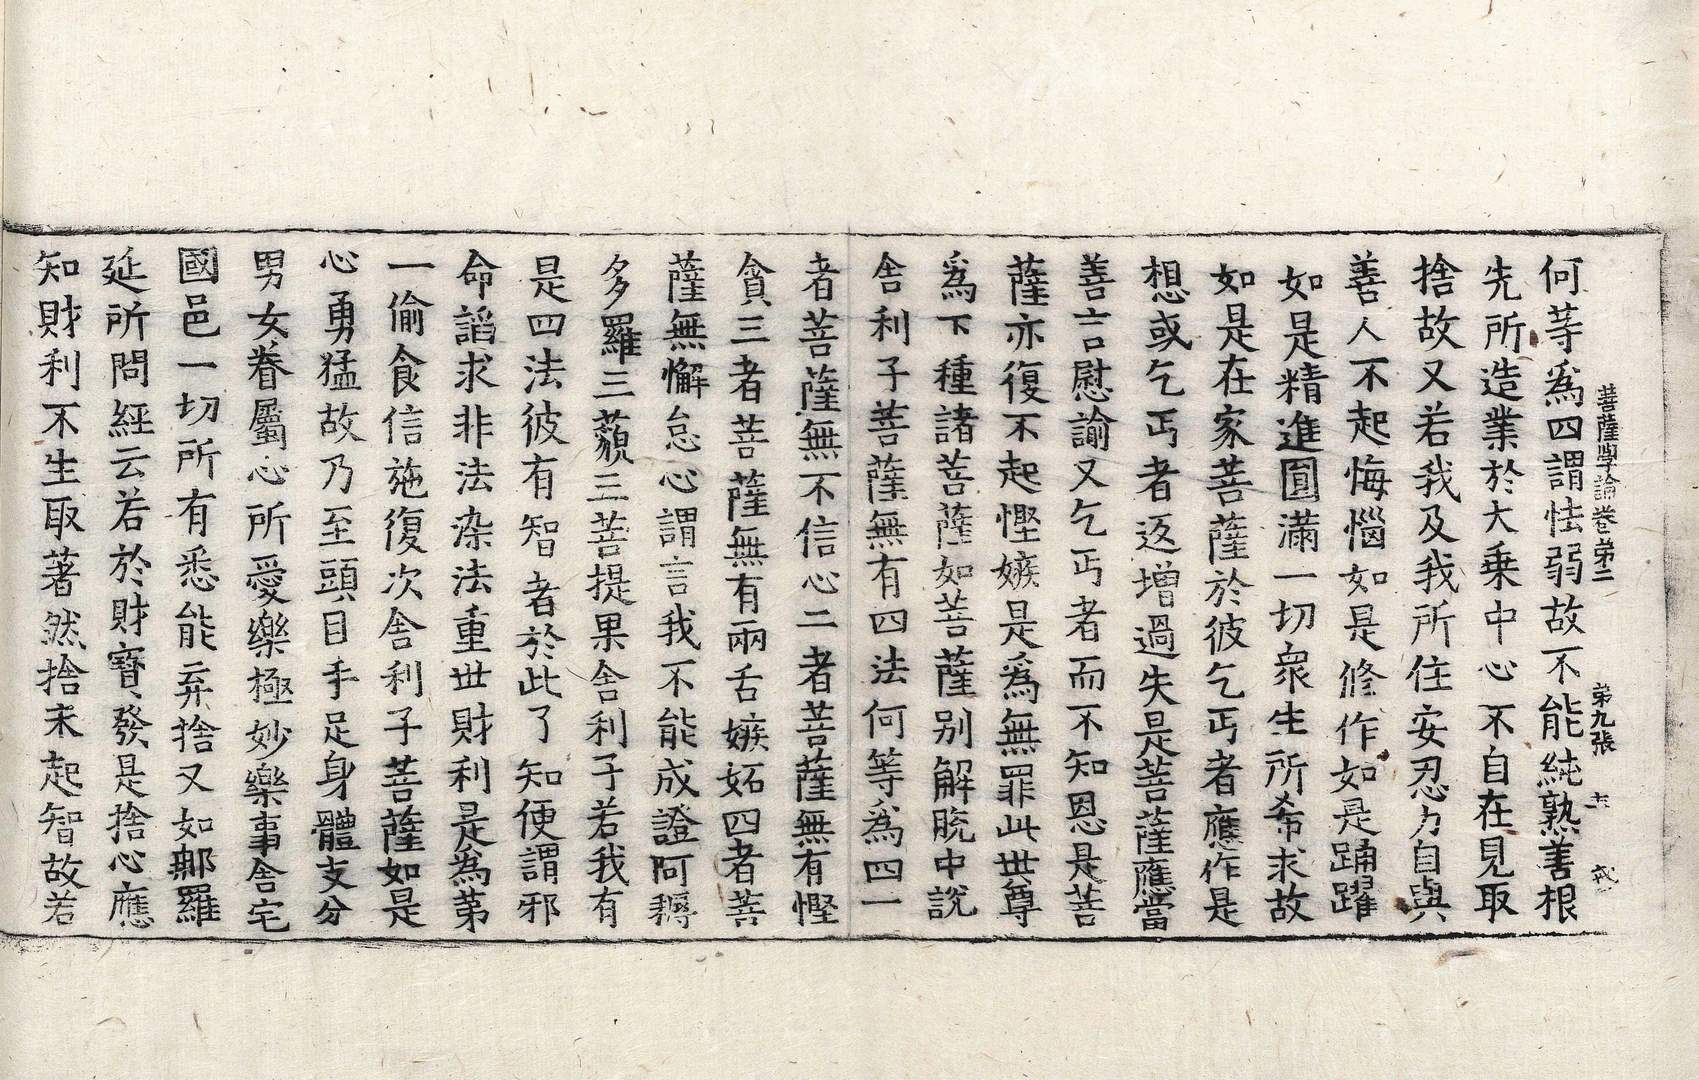 菩薩學論卷第二　第九張
何等爲四謂怯弱故不能純熟善根
先所造業於大乗中心不自在見取
捨故又若我及我所住安忍力自與
善人不起悔惱如是修作如是踊躍
如是精進圓滿一切衆生所希求故
如是在家菩薩於彼乞丐者應作是
想或乞丐者返增過失是菩薩應當
善言慰諭又乞丐者而不知恩是菩
薩亦復不起慳嫉是爲無罪此世尊
爲下種諸菩薩如菩薩别解脫中說
舎利子菩薩無有四法何等爲四一
者菩薩無不信心二者菩薩無有慳
貪三者菩薩無有兩舌嫉妬四者菩
薩無懈怠心謂言我不能成證阿耨
多羅三藐三菩提果舎利子若我有
是四法彼有智者於此了知便謂邪
命謟求非法染法重世財利是為苐
一偷食信施復次舎利子菩薩如是
心勇猛故乃至頭目手足身體支分
男女眷屬心所愛樂極妙樂事舎宅
國邑一切所有悉能弃捨又如那羅
延所問經云若於財寳發是捨心應
知財利不生取著然捨未起智故若